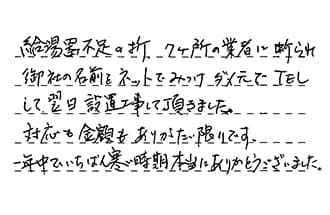 給湯器不足の折、7ヶ所の業者に断られ
御社の名前をネットでみつけ ダメ元でTEL
して翌日設置工事して頂きました。
対応も金額もありがたい限りです。
一年中でいちばん寒い時期本当にありがとうございました。